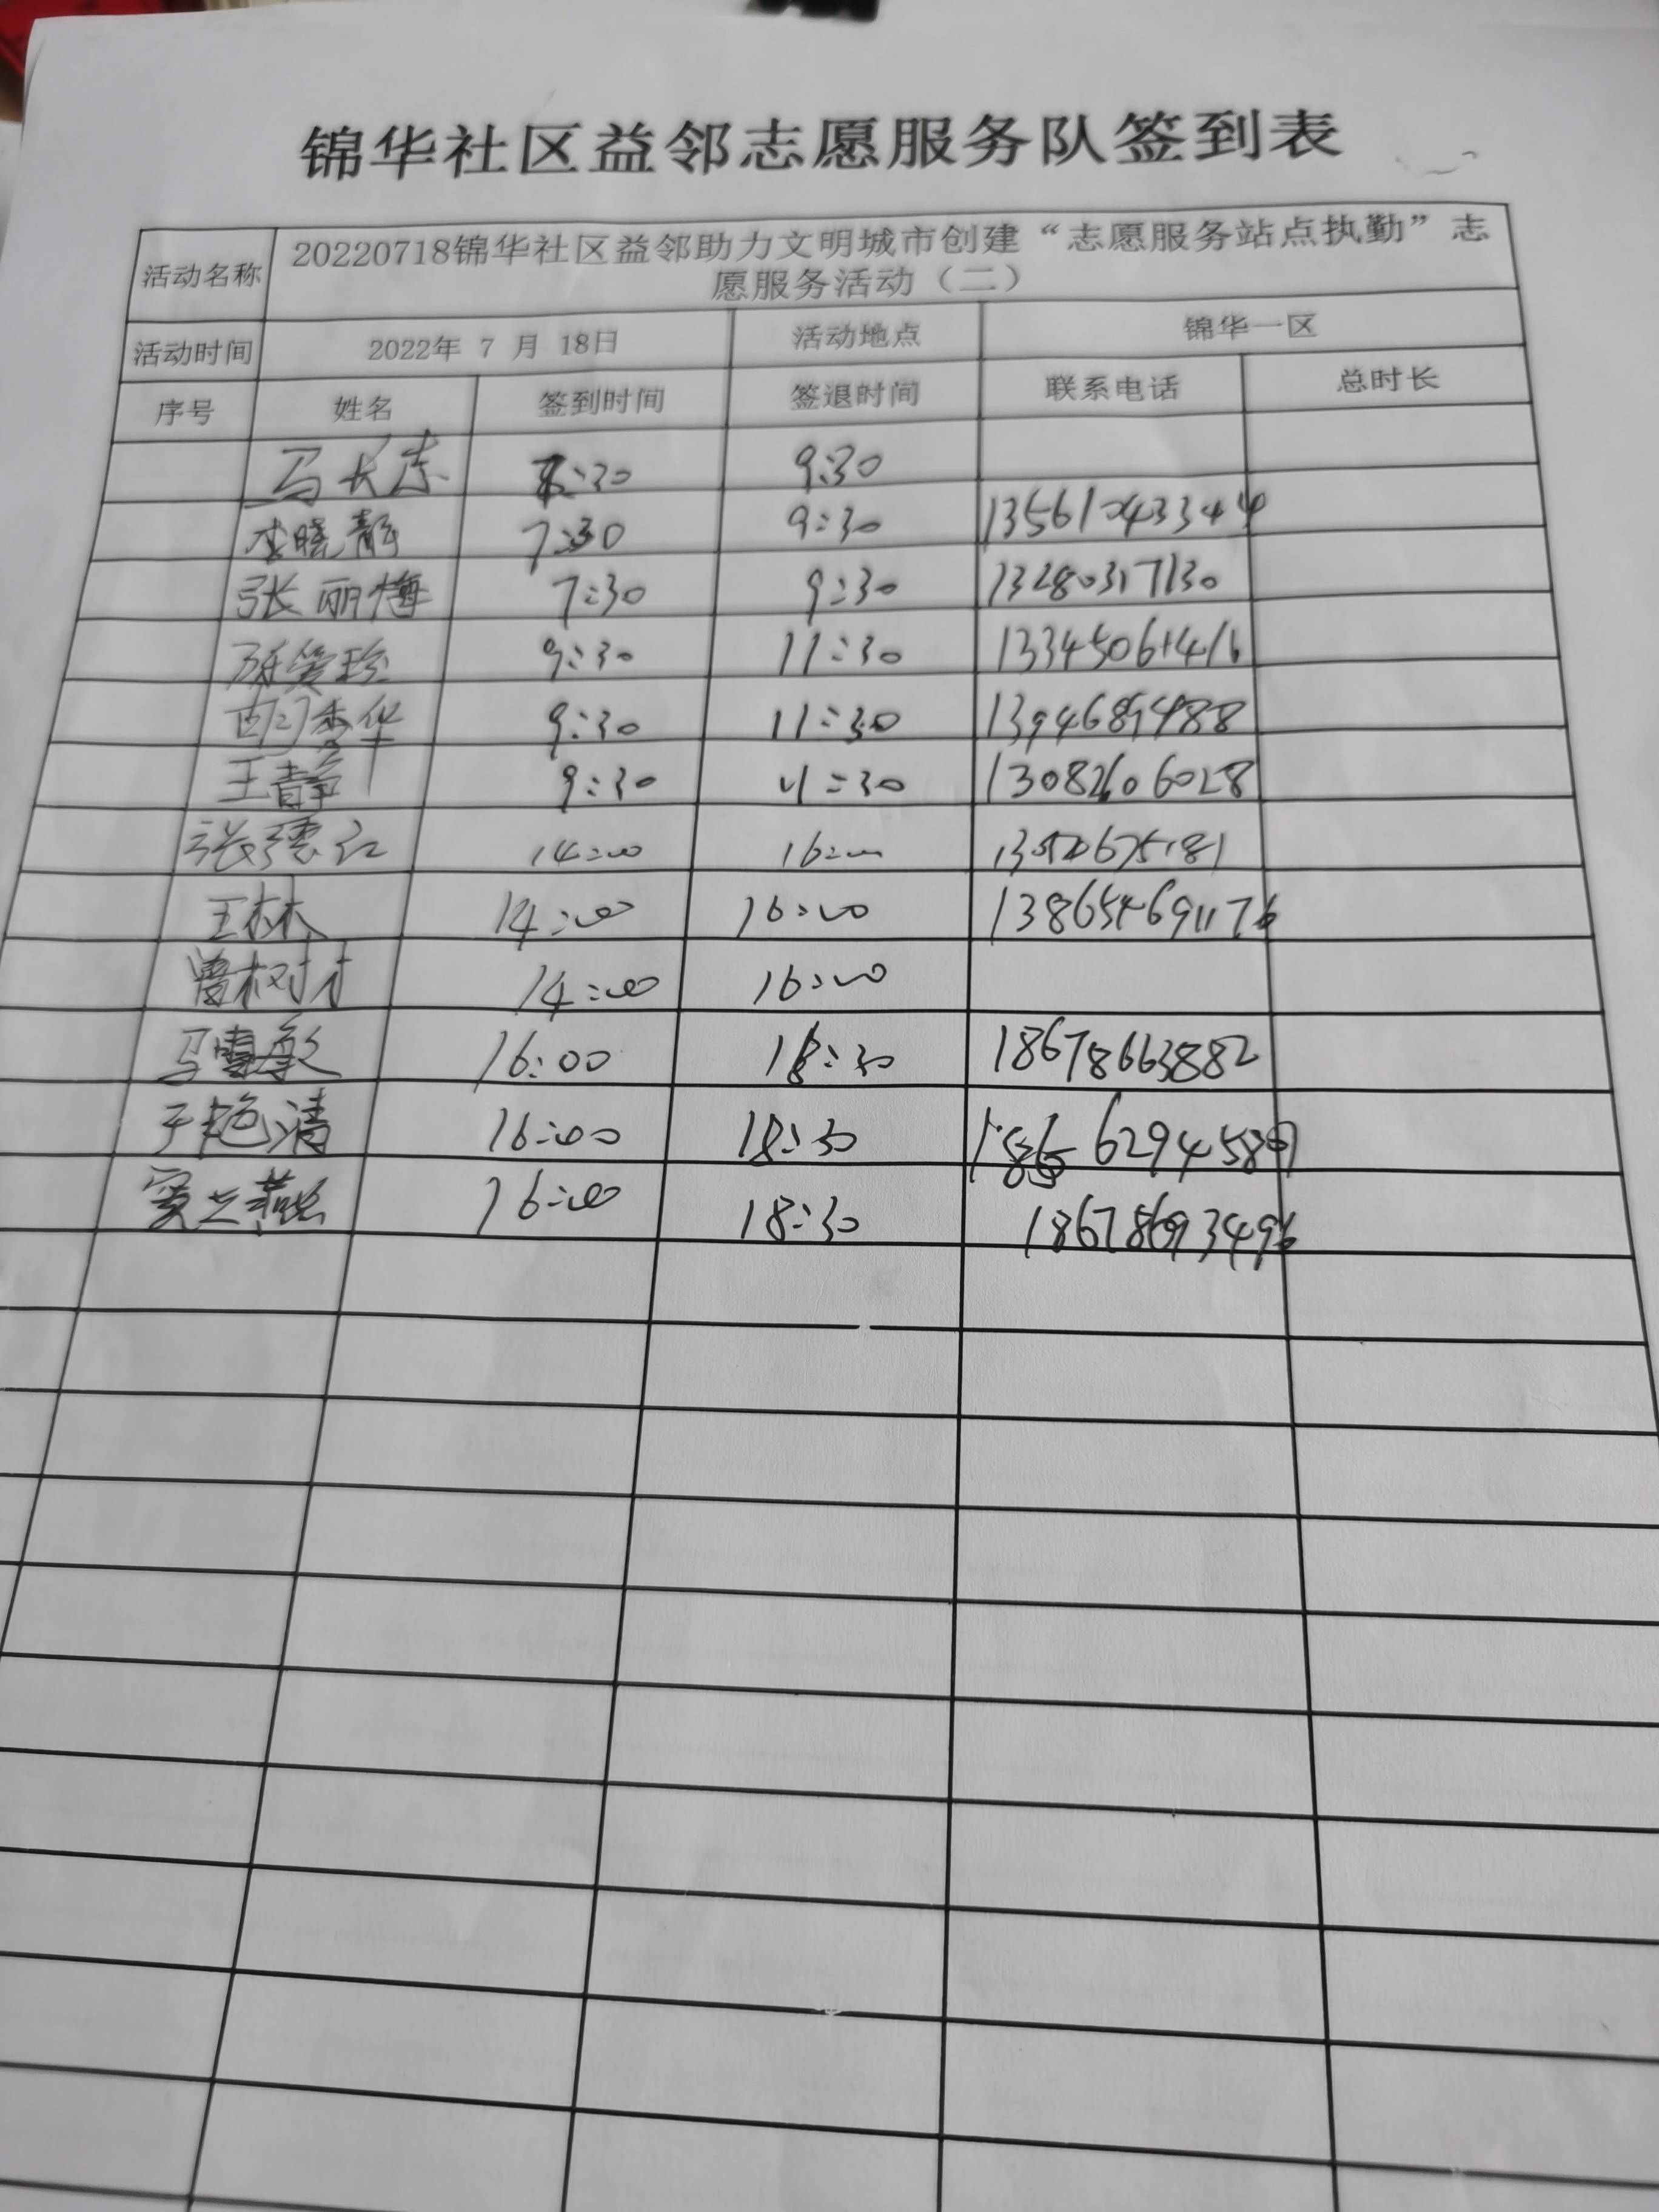 锦华社区益邻志愿服务队签到表
活动名称 20220718锦华社区益邻助力文明城市创建“志愿服务站点执勤”志
愿服务活动（二）
活动时间 2022年 7 月 18日 活动地点 锦华一区
序号 姓名 签到时间 签退时间 联系电话 总时长
马长志 7:30 9:30
李晓静 7:30 9:30
张丽梅 7:30 9:30 13280317130
9:30 11:30
西门秀华 9:30 11:30 1394689488
王静 9:30 11:30 13082606028
14:00 16:00
王林 14:00 16:00
曾树村 14:00 16:00
马雪敏 16:00 18:30 18678663882
于艳清 16:00 18:30
16:00 18:30 18678693496